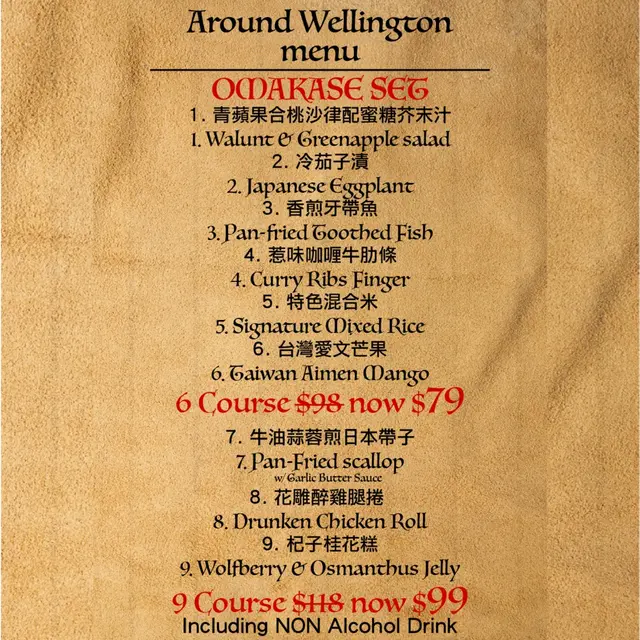 Around Wellington
menu
OMAKASE SET
1. 青蘋果合桃沙律配蜜糖芥末汁
1. Walunt & Greenapple salad
2. 冷茄子漬
2. Japanese Eggplant
3. 香煎牙帶魚
3. Pan-fried Toothed Fish
4. 惹味咖喱牛肋條
4. Curry Ribs Finger
5. 特色混合米
5. Signature Mixed Rice
6. 台灣愛文芒果
6. Taiwan Aimen Mango
6 Course $98 now $79
7. 牛油蒜蓉煎日本帶子
7. Pan-Fried scallop
w/ Garlic Butter Sauce
8. 花雕醉雞腿捲
8. Drunken Chicken Roll
9. 杞子桂花糕
9. Wolfberry & Osmanthus Jelly
9 Course $118 now $99
Including NON Alcohol Drink